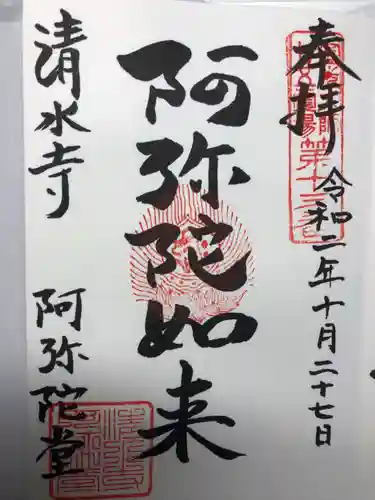 奉拝
令和二年十月二十七日
阿弥陀如来
清水寺
阿弥陀堂